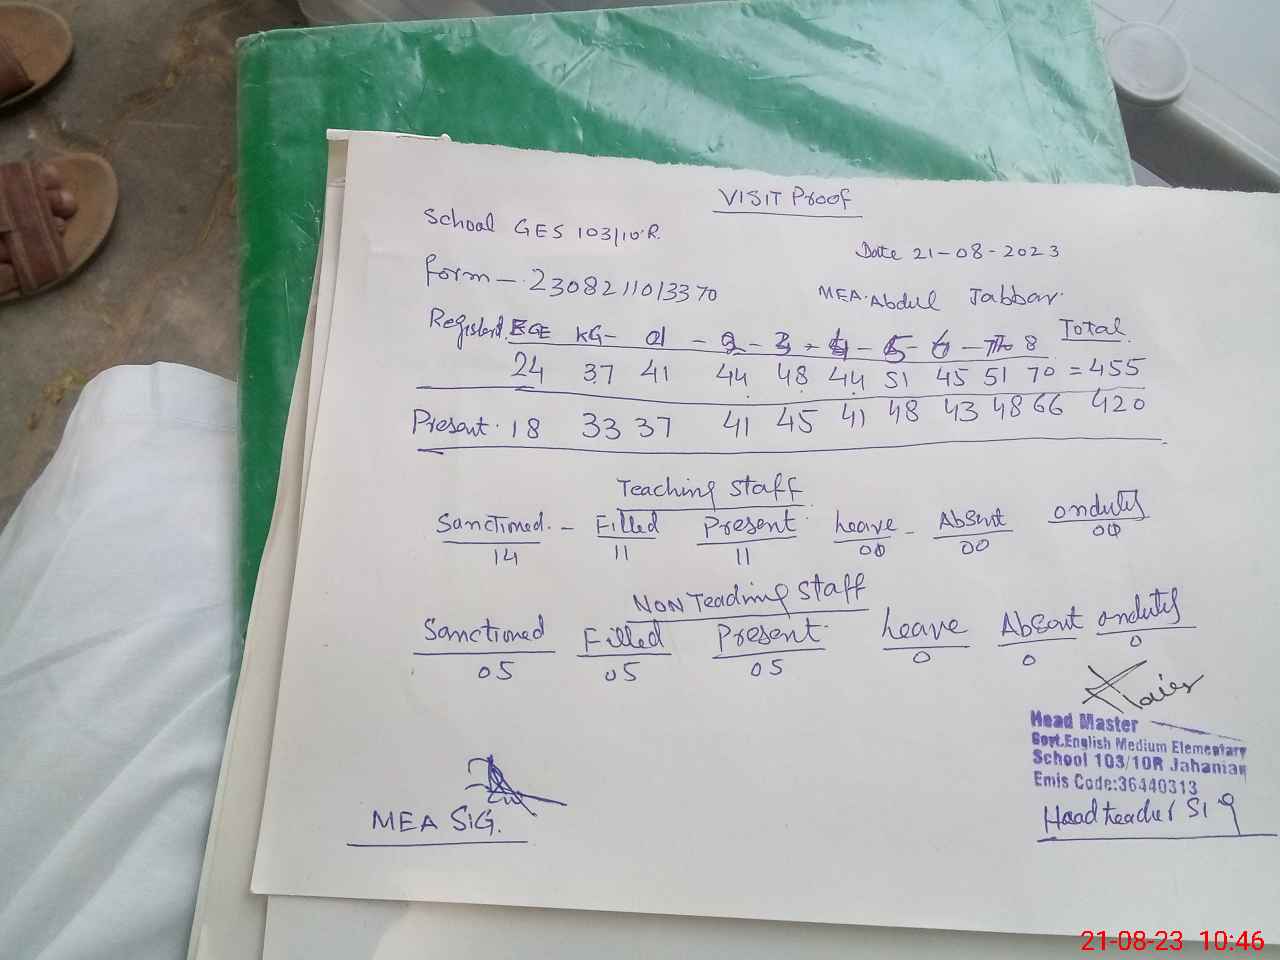 VISIT Proof
School GES 103/10.R.
Date 21-08-2023
Form - 2308211013370
MEA. Abdul Jabbar.
Registerd. ECE KG - 01 - 2 - 3 - 4 - 5 - 6 - 7 8 Total
24 37 41 44 48 44 51 45 51 70 = 455
Present. 18 33 37 41 45 41 48 43 48 66 420
Teaching Staff
Sanctioned. - Filled Present Leave - Absent onduty
14 11 11 00 00 00
NON Teaching Staff
Sanctioned Filled Present. Leave Absent onduty
05 05 05 0 0 0
Head Master
Govt.English Medium Elementary
School 103/10R Jahanian
Emis Code:36440313
MEA SIG.
Headteacher Sig
21-08-23 10:46